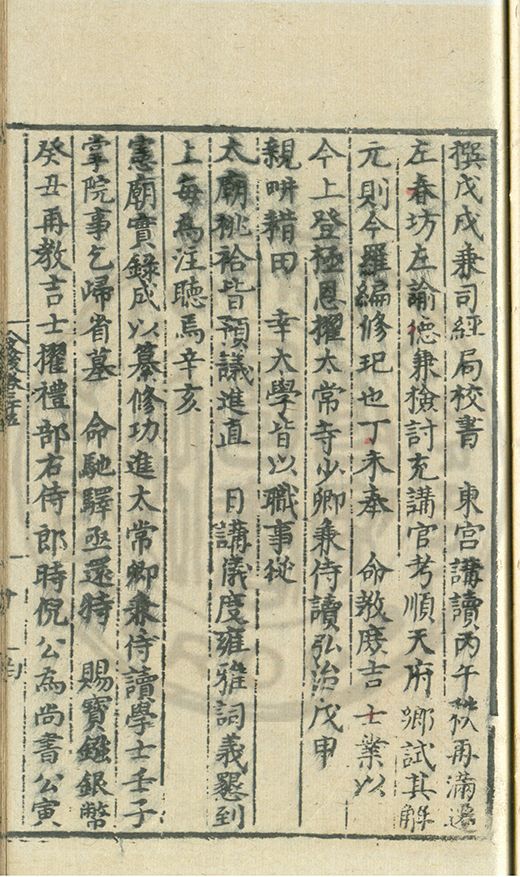 撰戊戌兼司經局校書　東宮講讀丙午秩再滿遷
左春坊左諭德兼檢討充講官考順天府鄉試其解
元則今羅編修玘也丁未奉　命教庶吉士業以
今上登極恩擢太常寺少卿兼侍讀弘治戊申
親畊耤田　幸太學皆以職事從
太廟祧祫皆預議進直　日講儀度雍雅詞義懇到
上每為注聽焉辛亥
憲廟實錄成以纂修功進太常卿兼侍讀學士壬子
掌院事乞歸省墓　命馳驛亟還時　賜寶鏹銀幣
癸丑再教吉士擢禮部右侍郎時倪公為尚書公寅